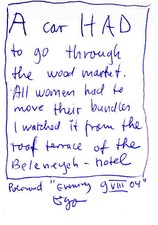 A car HAD
to go through
the wood market.
All women had to
move their bundles
I watched it from the
roof terrace of the
Beleneyeh - hotel
"Evening 9 VIII 04"